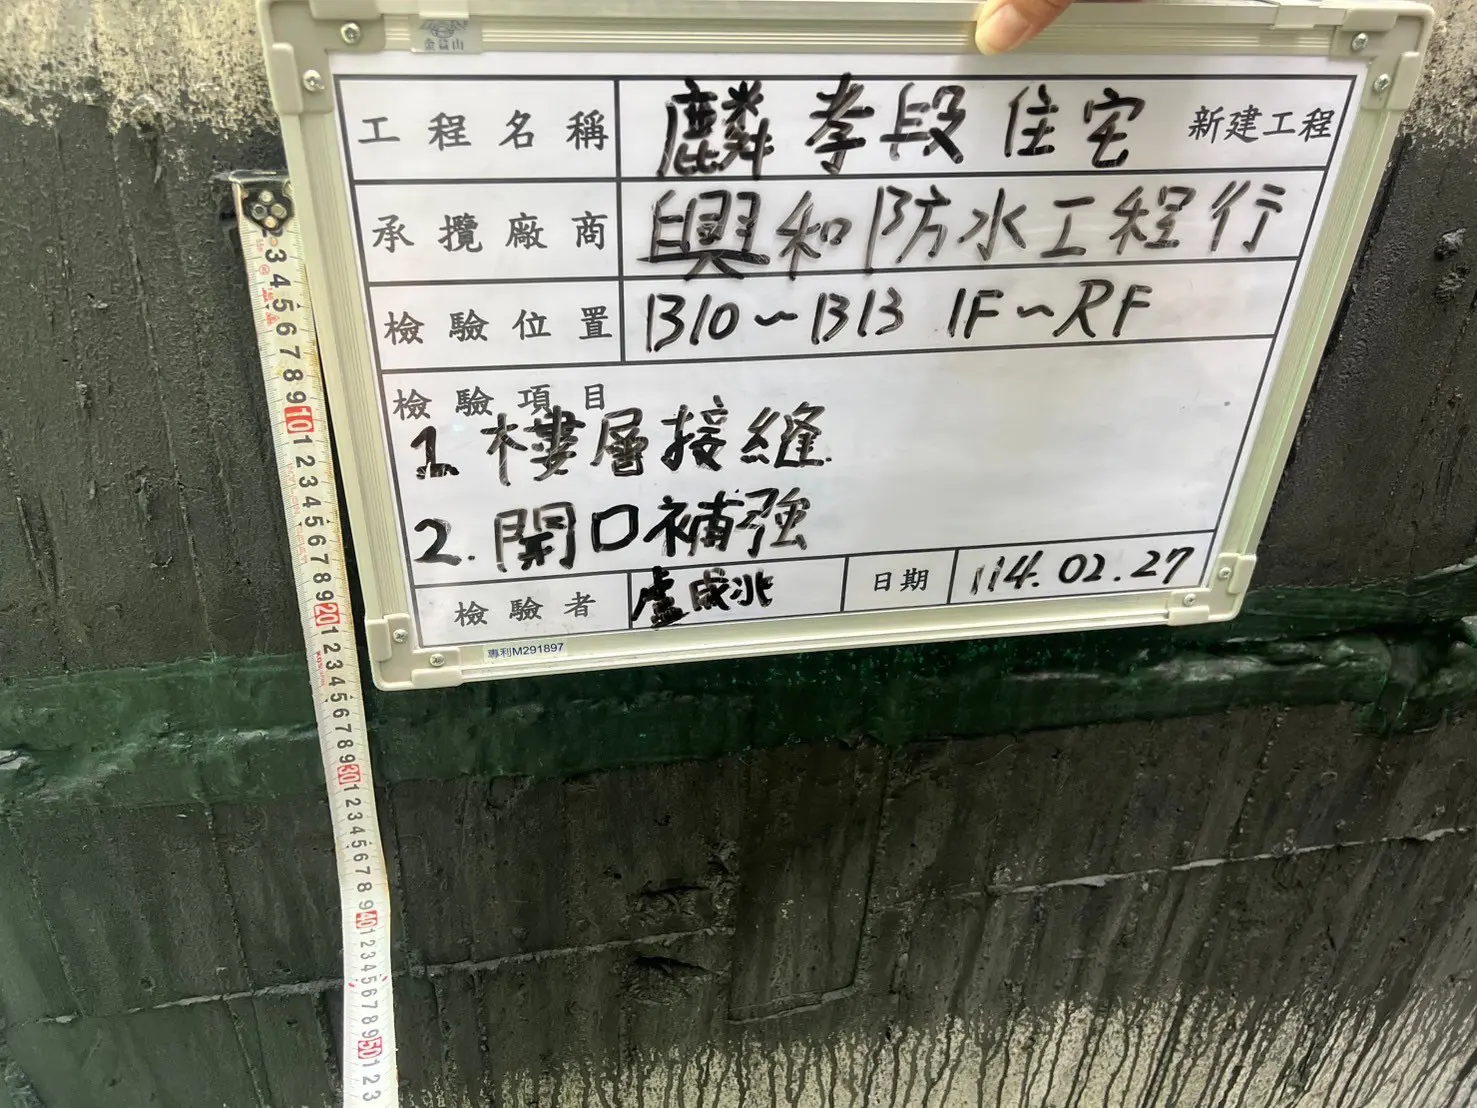 金益山
工程名稱 麟孝段住宅 新建工程
承攬廠商 興和防水工程行
檢驗位置 B10~B13 1F~RF
檢驗項目
1. 樓層接縫
2. 開口補強
檢驗者 盧成兆 日期 114.02.27
專利M291897
3 4 5 6 7 8 9 10 1 2 3 4 5 6 7 8 9 20 1 2 3 4 5 6 7 8 9 30 1 2 3 4 5 6 7 8 9 40 1 2 3 4 5 6 7 8 9 50 1 2 3